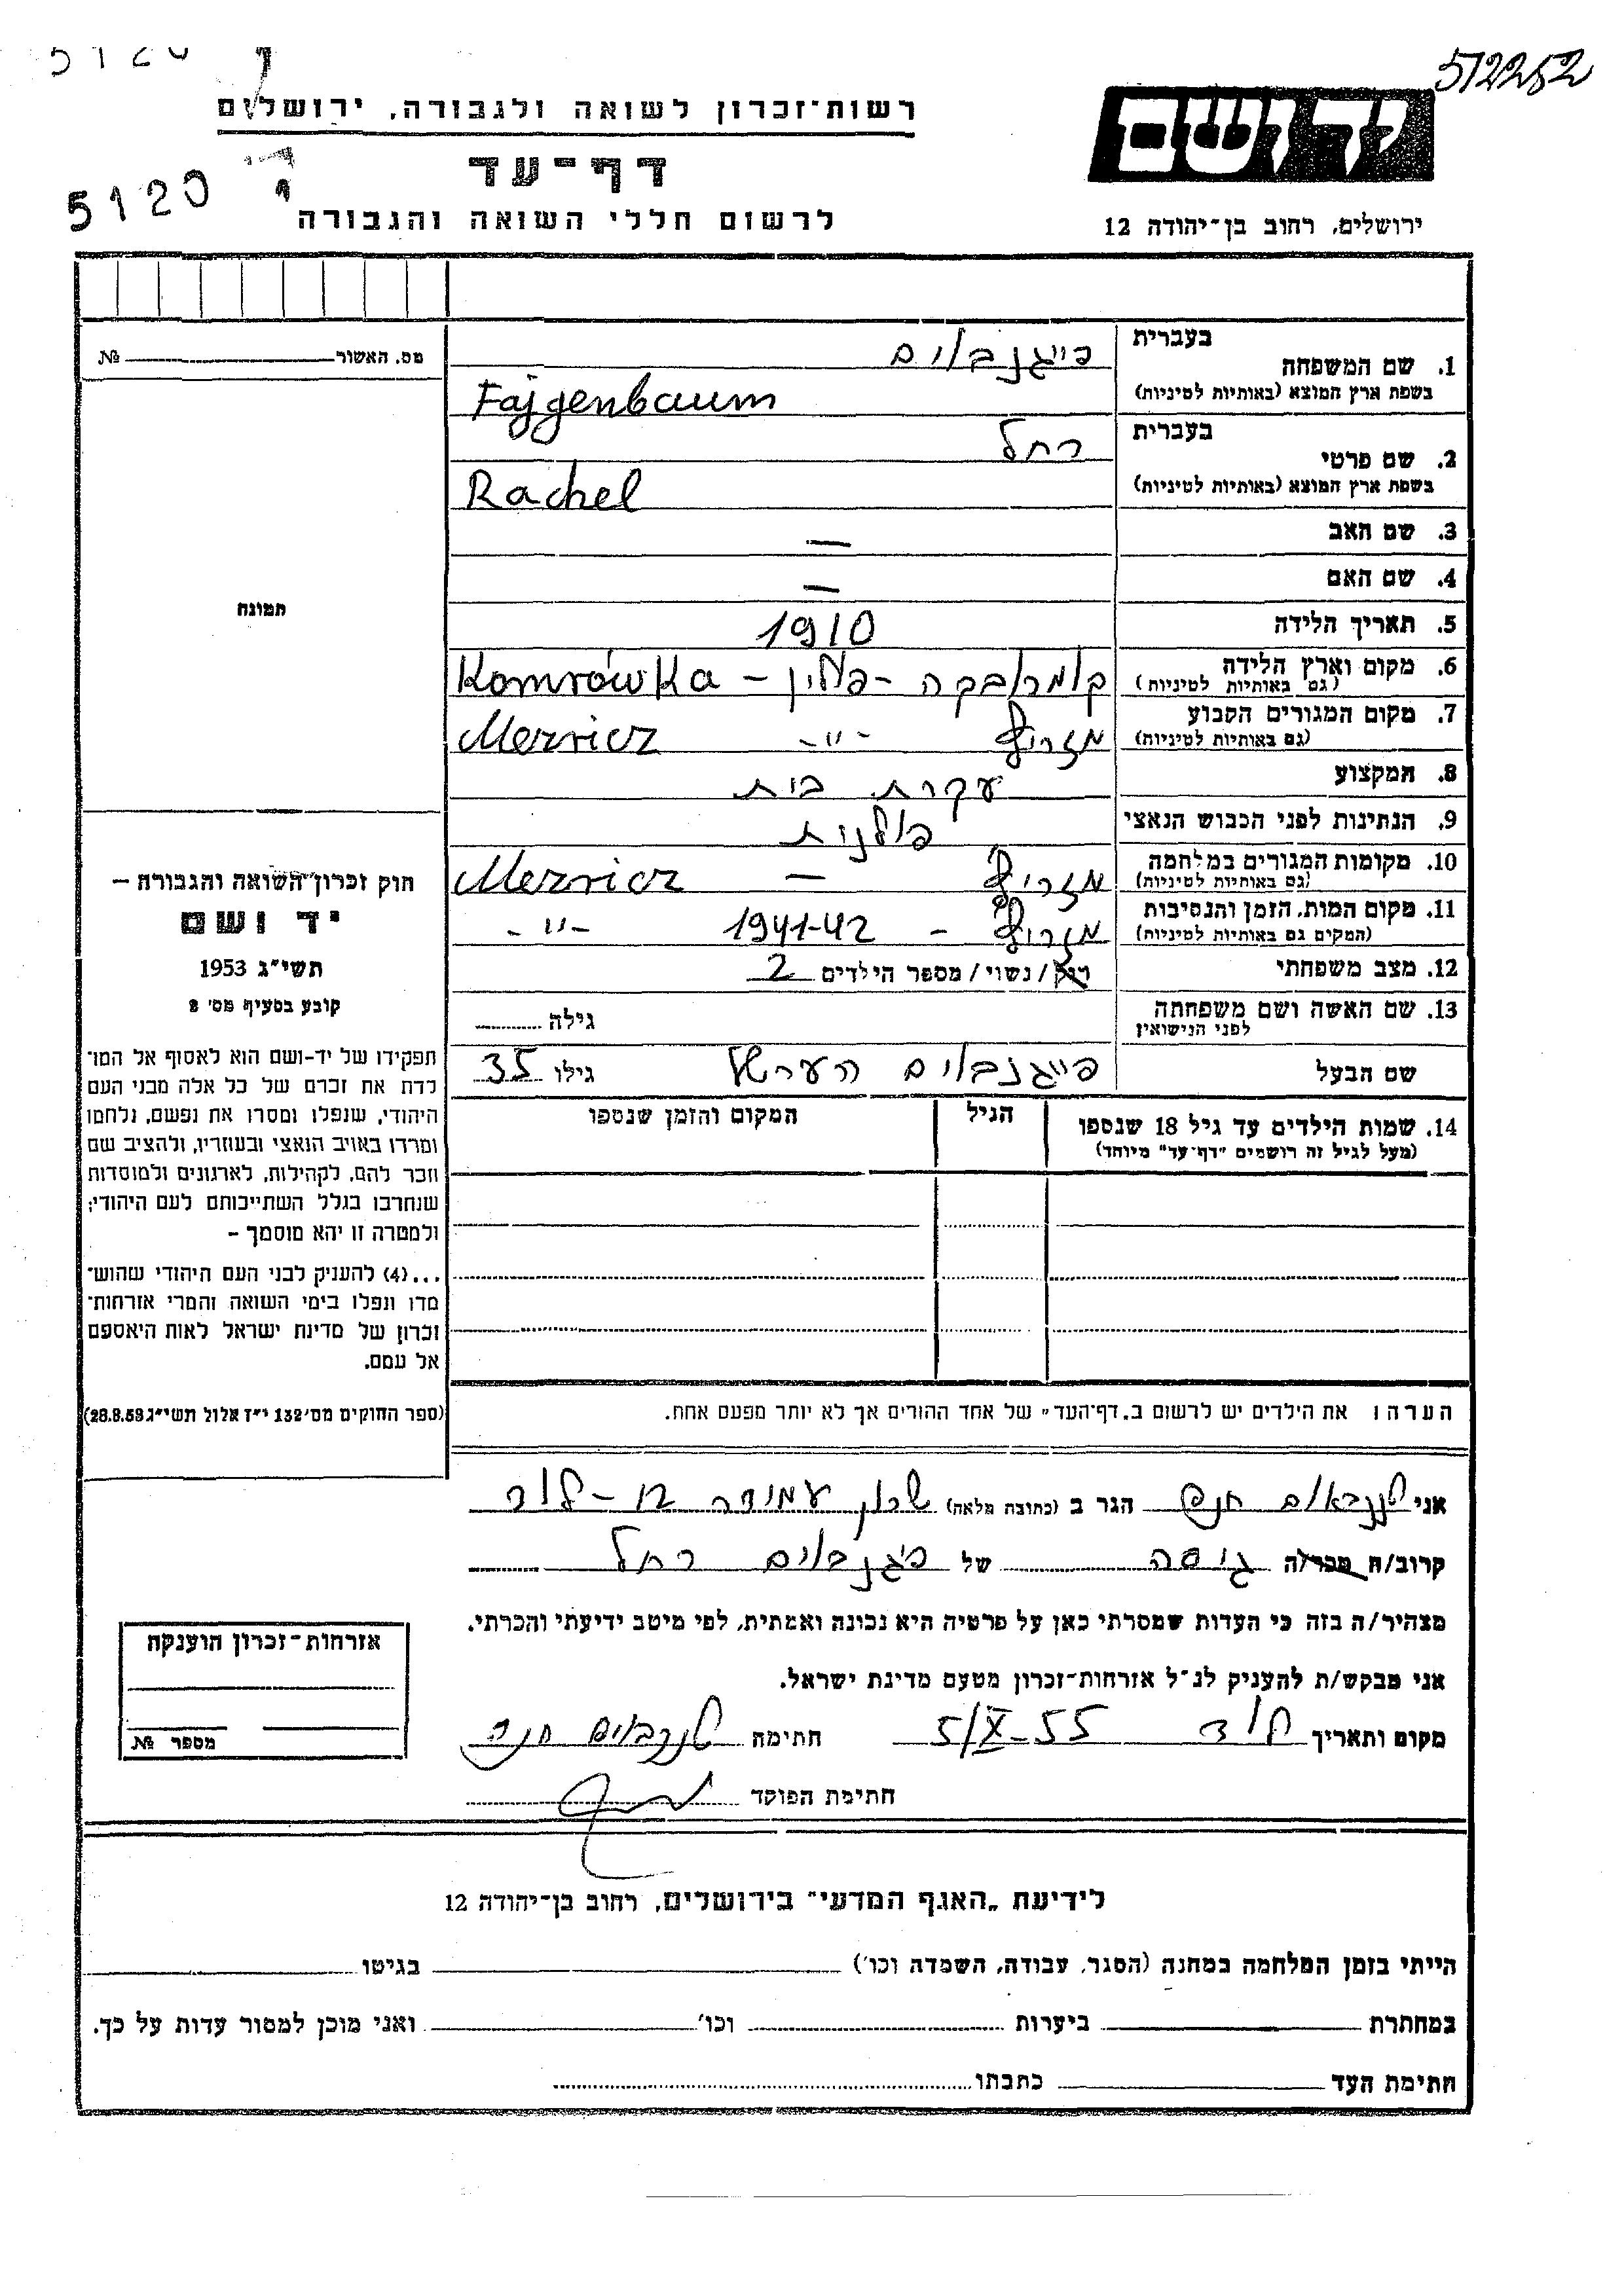 5120 ד
512252
רשות־זכרון לשואה ולגבורה, ירושלים
יד ושם
דף־עד
5120 ד
לרשום חללי השואה והגבורה
ירושלים, רחוב בן־יהודה 12
מס. האשור № 
1. שם המשפחה
בעברית פייגנבוים
בשפת ארץ המוצא (באותיות לטיניות) Fajgenbaum
2. שם פרטי
בעברית רחל
בשפת ארץ המוצא (באותיות לטיניות) Rachel
3. שם האב —
4. שם האם —
תמונה
5. תאריך הלידה 1910
6. מקום וארץ הלידה קומרובקה - פולין - Komrówka
(גם באותיות לטיניות)
7. מקום המגורים הקבוע מזריץ -"- Mezricz
(גם באותיות לטיניות)
8. המקצוע עקרת בית
9. הנתינות לפני הכבוש הנאצי פולנית
10. מקומות המגורים במלחמה מזריץ — Mezricz
(גם באותיות לטיניות)
11. מקום המות, הזמן והנסיבות מזריץ - 1941-42 -"-
(המקים גם באותיות לטיניות)
12. מצב משפחתי רוק/נשוי/מספר הילדים 2
13. שם האשה ושם משפחתה גילה
לפני הנישואין
שם הבעל פייגנבוים הערשל גילו 35
14. שמות הילדים עד גיל 18 שנספו הגיל המקום והזמן שנספו
(מעל לגיל זה רושמים "דף־עד" מיוחד)
חוק זכרון השואה והגבורה —
יד ושם
תשי"ג 1953
קובע בסעיף מס' 2
תפקידו של יד-ושם הוא לאסוף אל המו־
לדת את זכרם של כל אלה מבני העם
היהודי, שנפלו ומסרו את נפשם, נלחמו
ומרדו באויב הנאצי ובעוזריו, ולהציב שם
וזכר להם, לקהילות, לארגונים ולמוסדות
שנחרבו בגלל השתייכותם לעם היהודי;
ולמטרה זו יהא מוסמך —
...(4) להעניק לבני העם היהודי שהוש־
מדו ונפלו בימי השואה והמרי אזרחות־
זכרון של מדינת ישראל לאות היאספם
אל עמם.
(ספר החוקים מס' 132 י"ז אלול תשי"ג 28.8.53)
הערה: את הילדים יש לרשום ב"דף־העד" של אחד ההורים אך לא יותר מפעם אחת.
אני טננבאום חנה הגר ב (כתובת מלאה) שכון עמידר - לוד
קרוב/ה מכר/ה גיסה של פיגנבוים רחל
מצהיר/ה בזה כי העדות שמסרתי כאן על פרטיה היא נכונה ואמתית, לפי מיטב ידיעתי והכרתי.
אני מבקש/ת להעניק לנ"ל אזרחות־זכרון מטעם מדינת ישראל.
מקום ותאריך לוד 5/X-55 חתימה טננבוים חנה
חתימת הפוקד
אזרחות־זכרון הוענקה
מספר №
לידיעת "האגף המדעי" בירושלים, רחוב בן־יהודה 12
הייתי בזמן המלחמה במחנה (הסגר, עבודה, השמדה וכו') בגיטו
במחתרת ביערות וכו' ואני מוכן למסור עדות על כך.
חתימת העד כתבתו